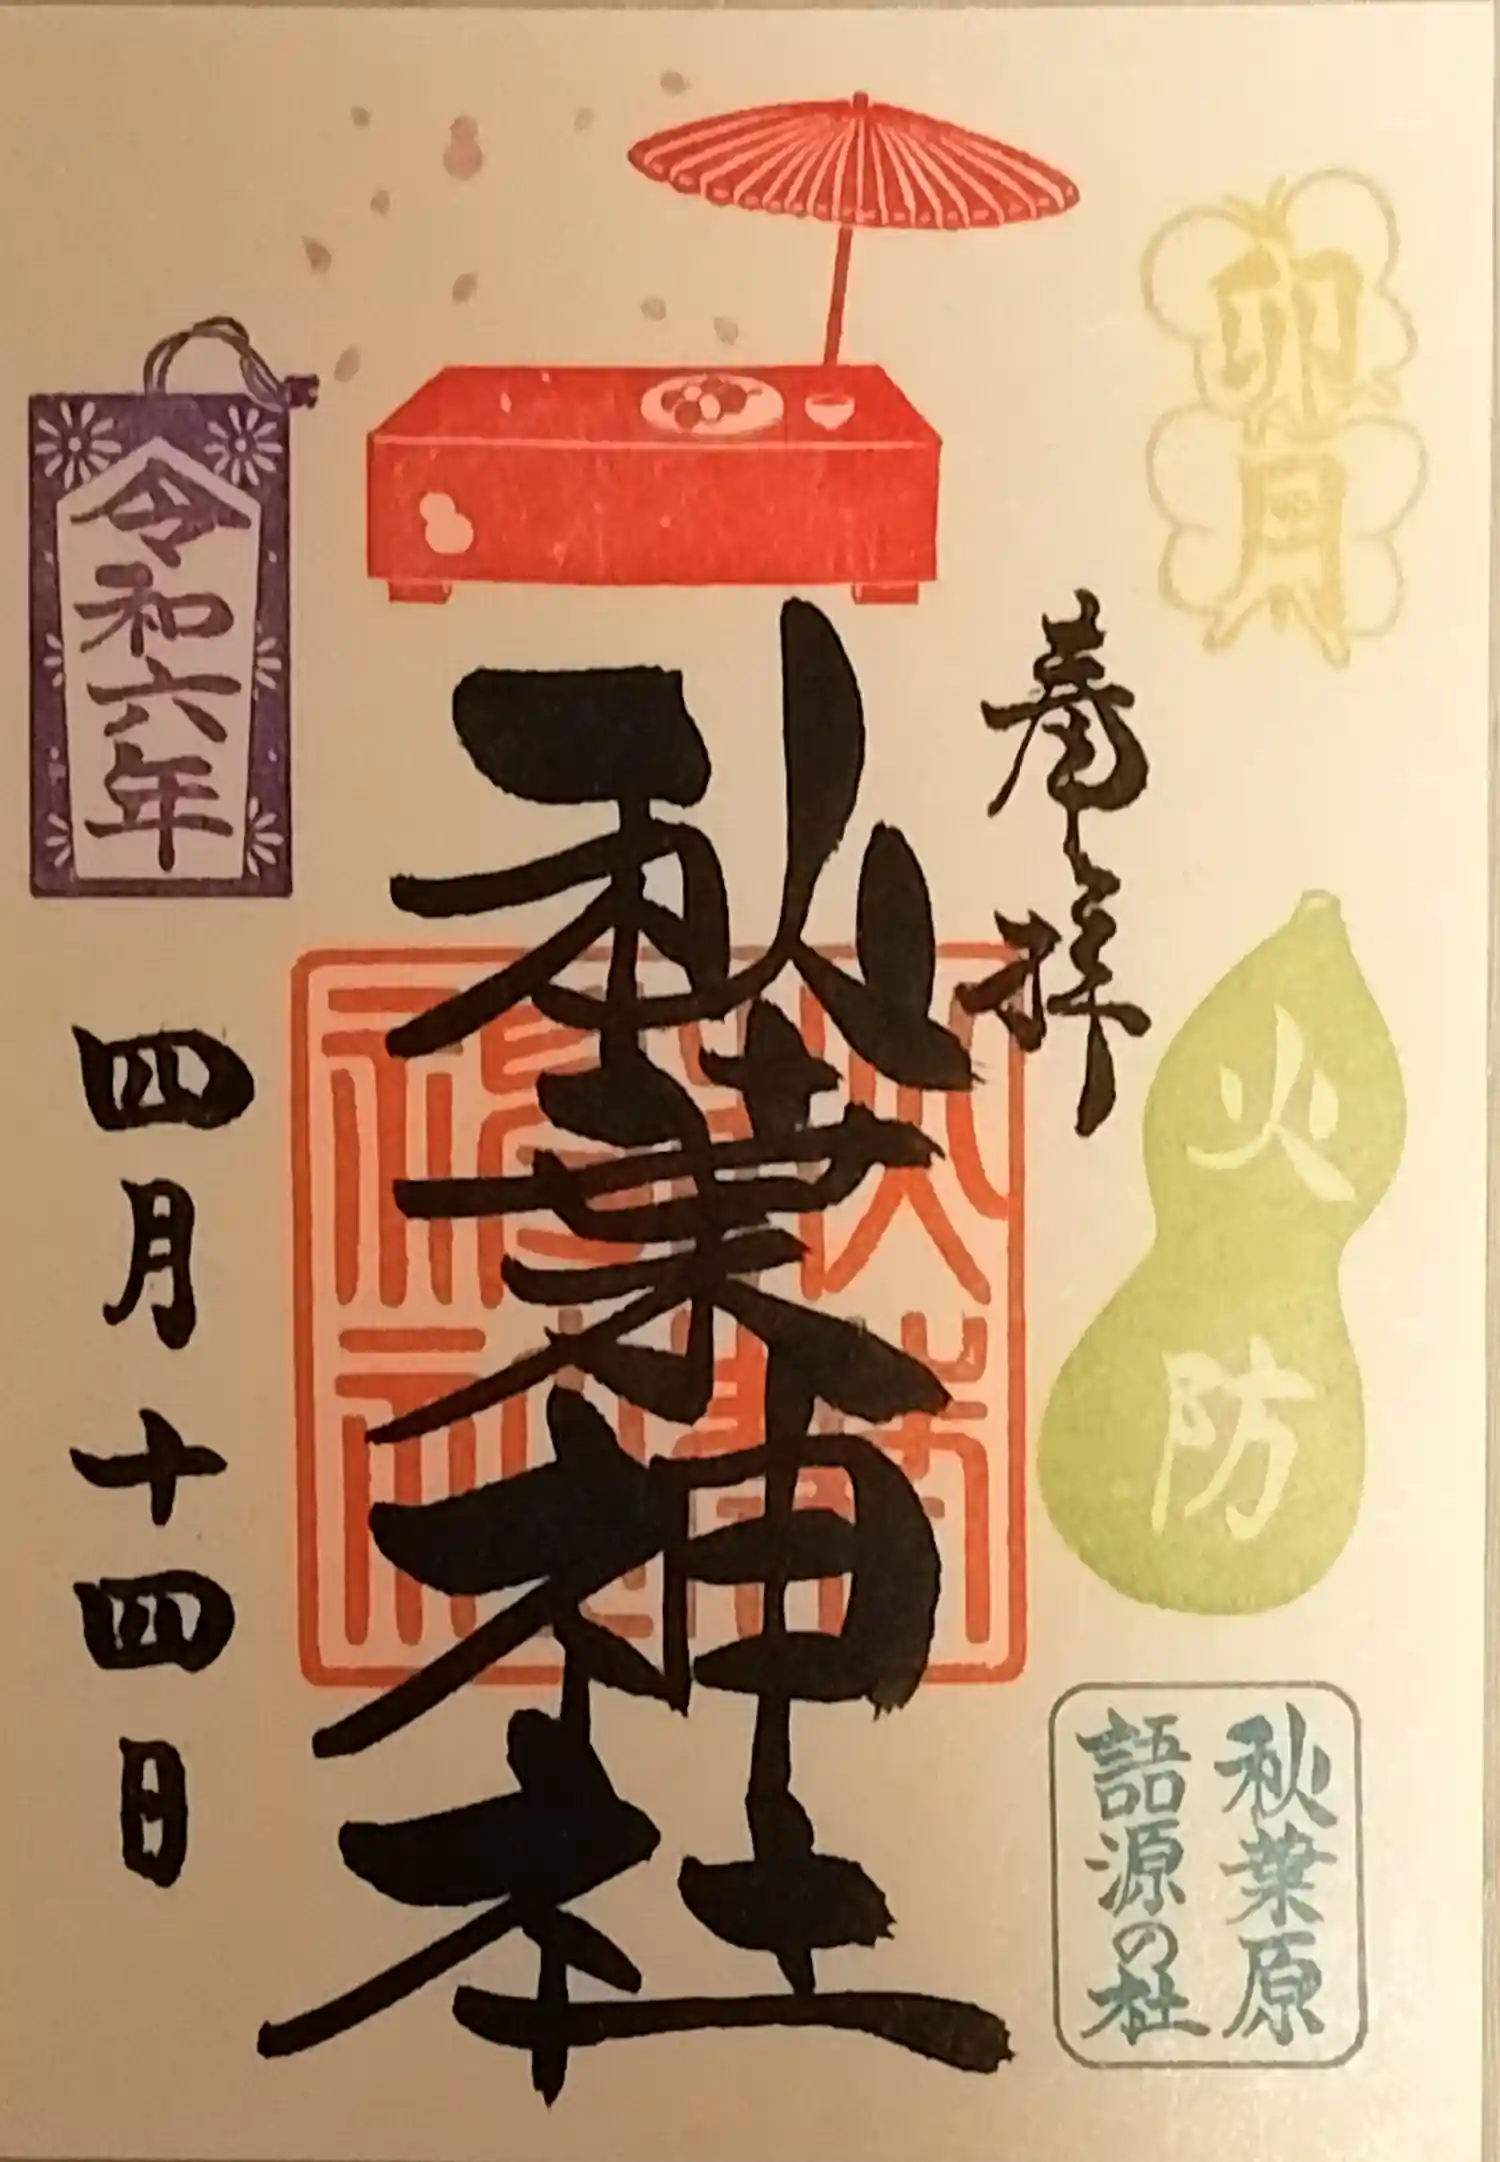 卯月
火防
秋葉原
語源の杜
奉拝
秋葉神社
秋葉
神社
令和六年
四月十四日